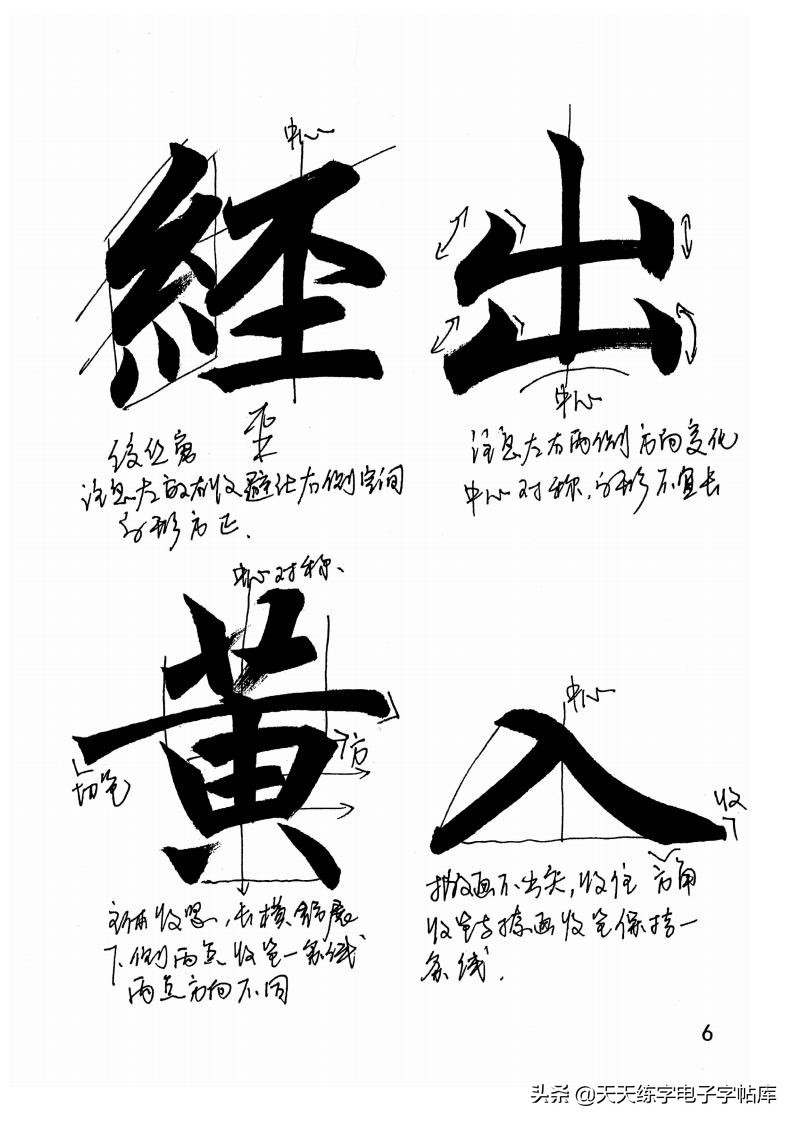 中心
経
出
中心
绞丝窄
注意左放右收避让右侧空间
字形方正.
注意左右两侧方向变化
中心对称,字形不宜长
中心对称、
黄
切笔
方
中心
入
收
方角
主体收紧,长横舒展
下侧两点收笔一条线
两点方向不同
撇画不出尖,收住
收笔与捺画收笔保持一
条线.
6
头条 @天天练字电子字帖库